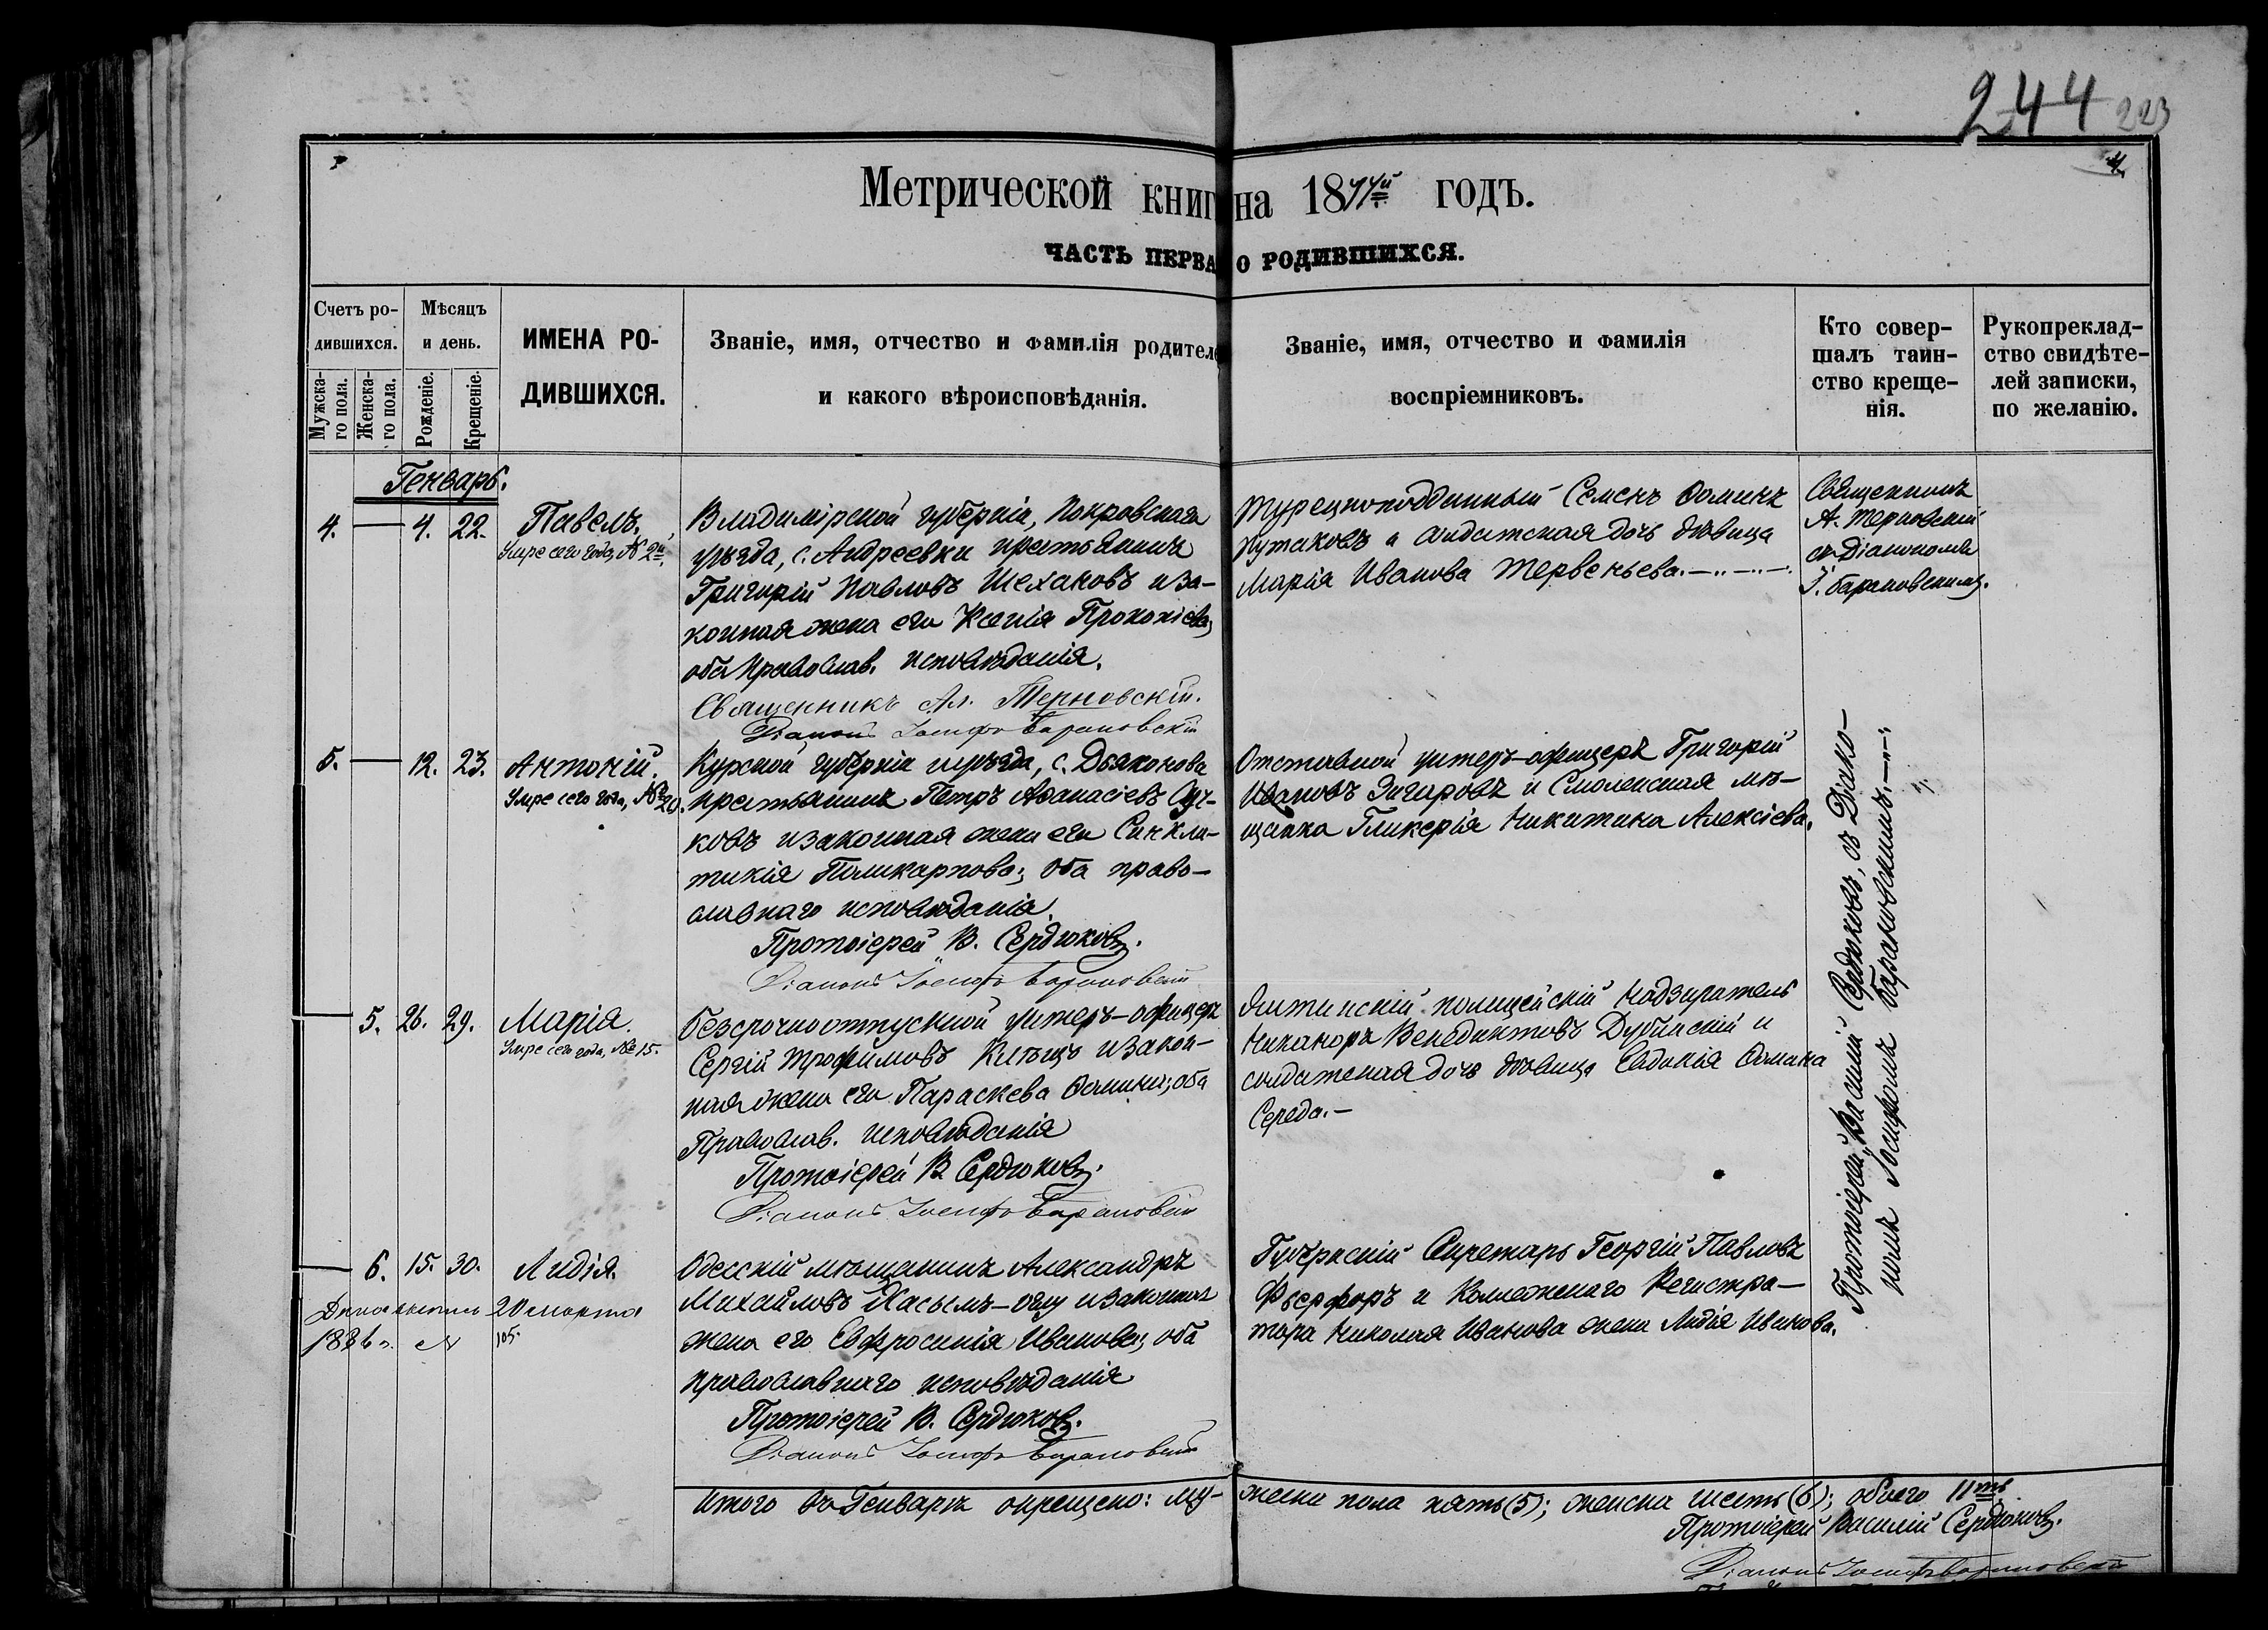 244 223
4.
Метрической книг на 1874й годъ.
ЧАСТЬ ПЕРВА О РОДИВШИХСЯ.
Счетъ ро-
дившихся.
Мужска-
го пола.
Женска-
го пола.
Мѣсяцъ
и день.
Рожденіе.
Крещеніе.
ИМЕНА РО-
ДИВШИХСЯ.
Званіе, имя, отчество и фамилія родителе
и какого вѣроисповѣданія.
Званіе, имя, отчество и фамилія
воспріемниковъ.
Кто совер-
шалъ таин-
ство креще-
нія.
Рукоприклад-
ство свидѣте-
лей записки,
по желанію.
Генварь.
4. — 4. 22. Павелъ.
Умре сего года, № 2й.
Владимірской губерніи, Покровскаго
уѣзда, с. Андреевки крестьянинъ
Григорій Павловъ Шехановъ и за-
конная жена его Ксенія Прокопіева;
оба православ. исповѣданія.
Священникъ Ал. Терновскій.
Діаконъ Іосифъ Барановскій
Турецкоподданный Семенъ Ѳоминъ
и солдатская дочь дѣвица
Марія Иванова Тервеньева.
Священникъ
А. Терновскій
съ Діакономъ
І. Барановскимъ.
5. — 12. 23. Антоній.
Умре сего года, № 20.
Курской губерніи и уѣзда, с. Дьяконова
крестьянинъ Петръ Аѳанасіевъ Суч-
ковъ и законная жена его Синкли-
тикія Поликарпова; оба право-
славнаго исповѣданія.
Протоіерей В. Сердюковъ.
Діаконъ Іосифъ Барановскій
Отставной унтеръ-офицеръ Григорій
Ивановъ и Смоленская мѣ-
щанка Гликерія Никитина Алексіева.
— 5. 26. 29. Марія.
Умре сего года, № 15.
Безсрочноотпускной унтеръ-офицеръ
Сергій Трофимовъ и закон-
ная жена его Параскева Ѳомина; оба
Православ. исповѣданія
Протоіерей В. Сердюковъ.
Діаконъ Іосифъ Барановскій
Ялтинскій полицейскій надзиратель
Никаноръ Венедиктовъ Дубинскій и
солдатская дочь дѣвица Евдокія Ѳомина
Середа. —
Протоіерей Василій Сердюковъ, съ Діако-
номъ Іосифомъ Барановскимъ.
— 6. 15. 30. Лидія.
20 марта
1886 г. № 105.
Одесскій мѣщанинъ Александръ
Михайловъ Касымъ-оглу и законная
жена его Евфросинія Иванова; оба
православнаго исповѣданія
Протоіерей В. Сердюковъ.
Діаконъ Іосифъ Барановскій
Губернскій Секретарь Георгій Павловъ
и Коллежскаго Регистра-
тора Николая Иванова жена Лидія Иванова.
Итого въ Генварѣ окрещено: му- жеска пола пять (5); женска шесть (6); обоего 11ть
Протоіерей Василій Сердюковъ.
Діаконъ Іосифъ Барановскій